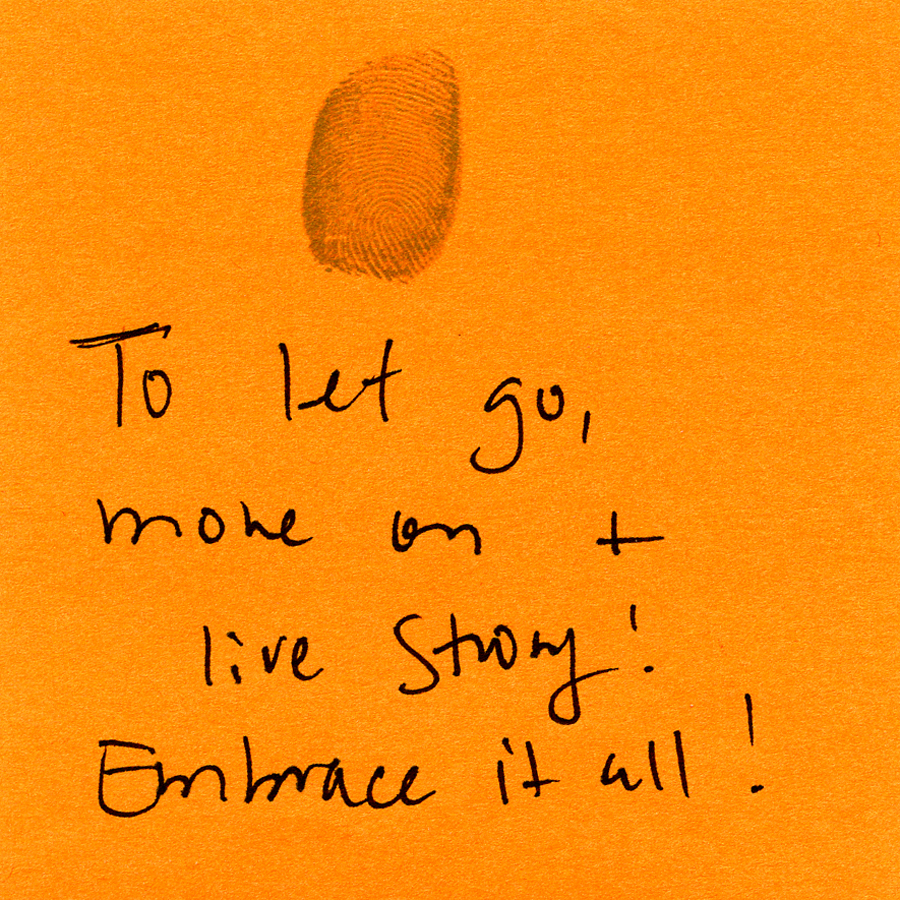 To let go,
move on +
live Strong!
Embrace it all!